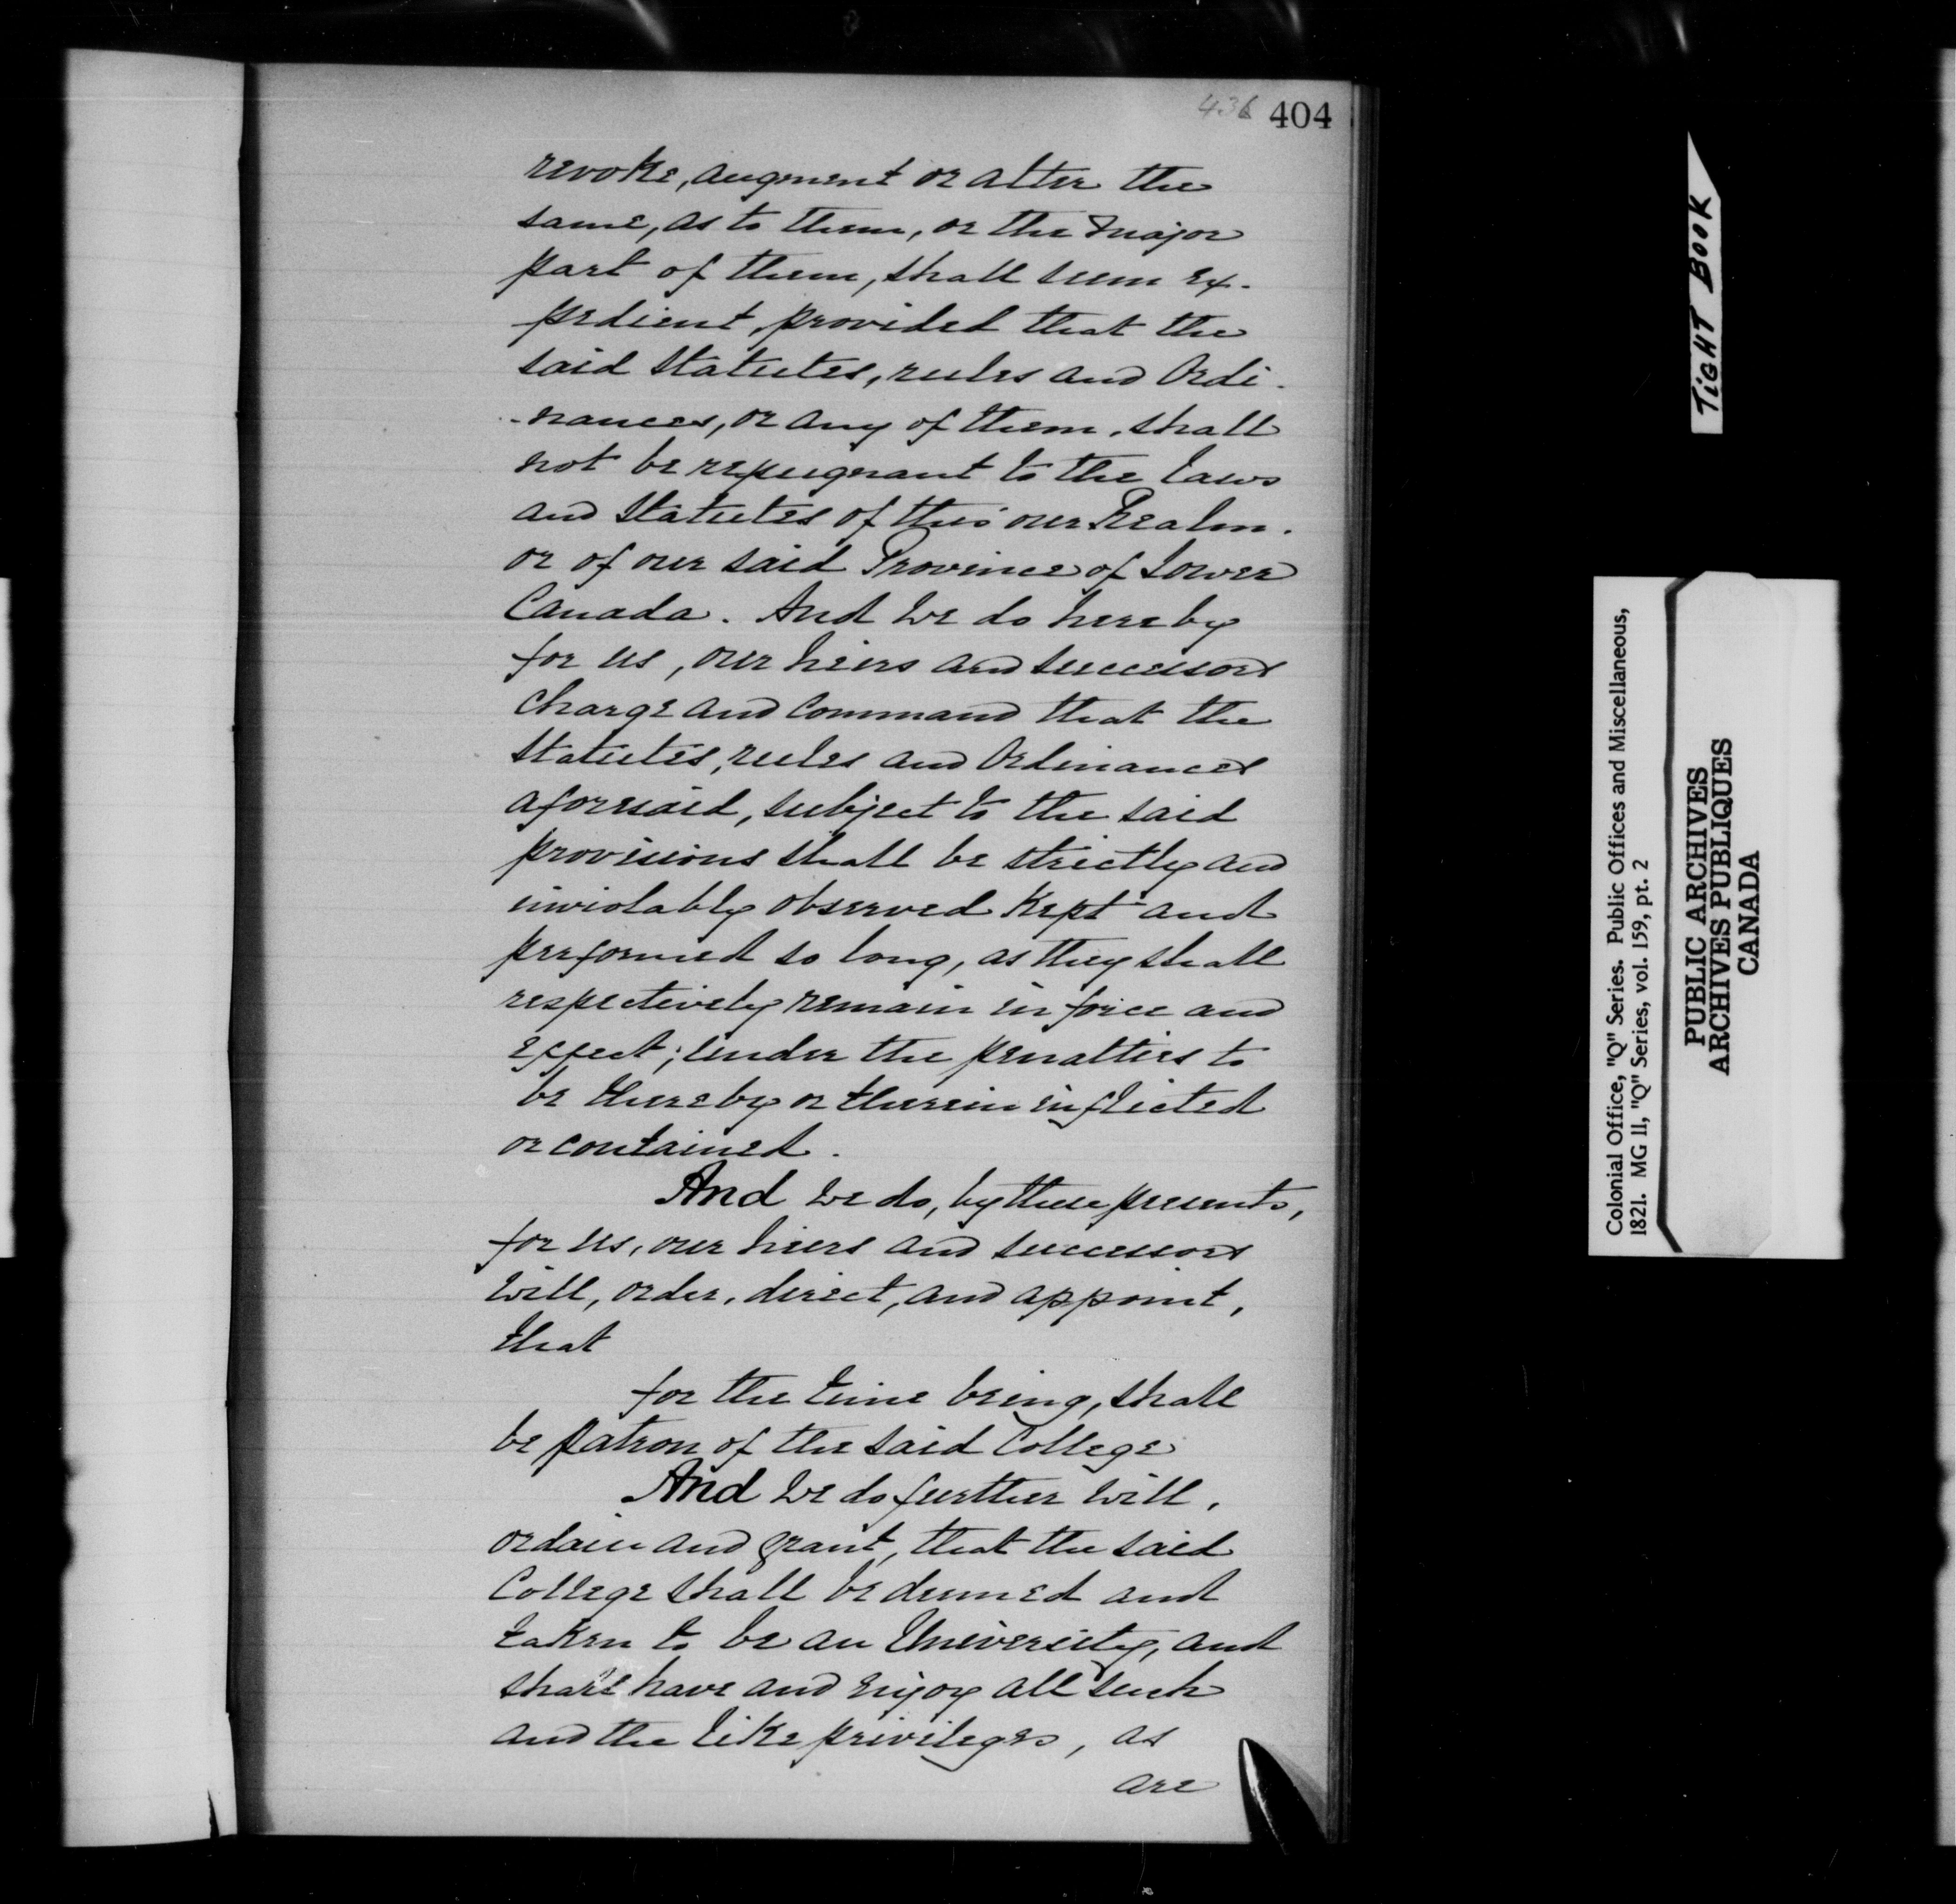 436 404
revoke, augment or alter the
same, as to them, or the major
part of them, shall seem ex-
pedient, provided that the
said Statutes, rules and Ordi-
-nances, or any of them, shall
not be repugnant to the laws
and Statutes of this our Realm.
or of our said Province of Lower
Canada. And we do hereby
for us, our heirs and successors
charge and command that the
Statutes, rules and Ordinances
aforesaid, subject to the said
provisions shall be strictly and
inviolably observed Kept and
performed so long, as they shall
respectively remain in force and
effect; under the penalties to
be thereby or therein inflicted
or contained.
And we do, by these presents,
for us, our heirs and successors
will, order, direct, and appoint,
that
for the time being, shall
be patron of the said College
And we do further will,
ordain and grant, that the said
College shall be deemed and
taken to be an University, and
shall have and enjoy all such
and the like privileges, as
are
TIGHT BOOK
Colonial Office, "Q" Series. Public Offices and Miscellaneous,
1821. MG 11, "Q" Series, vol. 159, pt. 2
PUBLIC ARCHIVES
ARCHIVES PUBLIQUES
CANADA